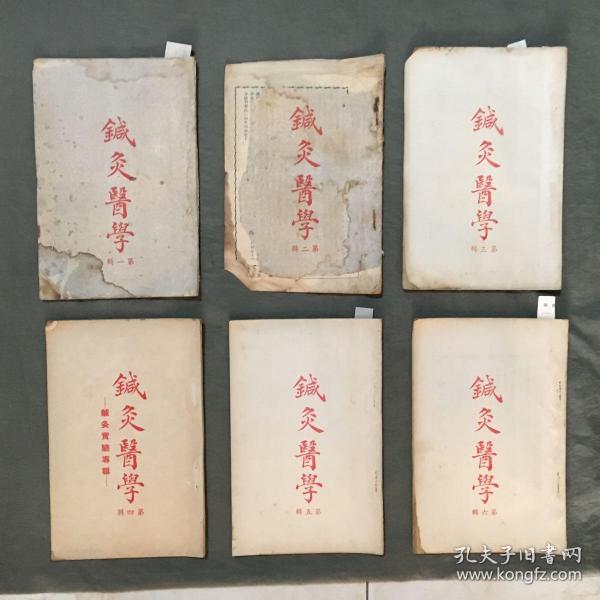 鍼灸醫學
第一輯
鍼灸醫學
第二輯
鍼灸醫學
第三輯
鍼灸醫學
鍼灸實驗專輯
第四輯
鍼灸醫學
第五輯
鍼灸醫學
第六輯
孔夫子旧书网
www.kongfz.com